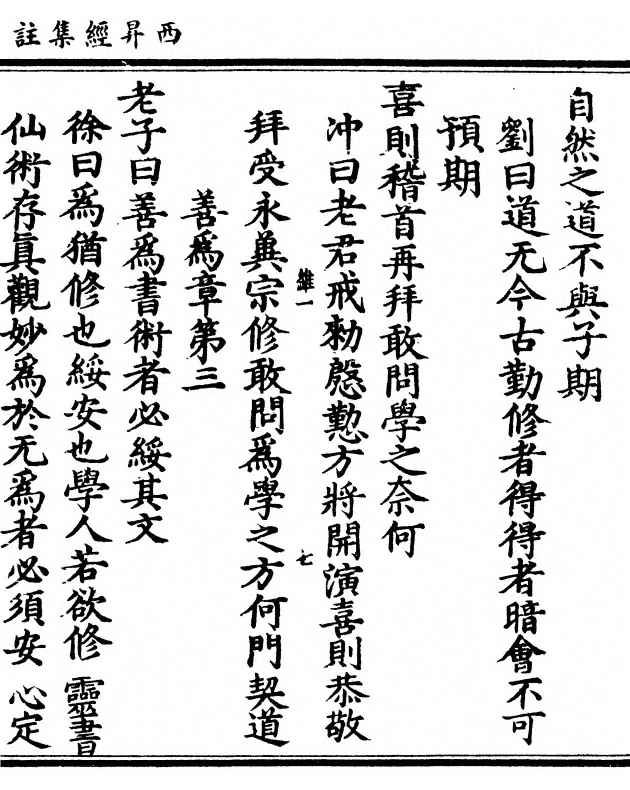 西昇經集註
自然之道不與子期
劉曰道无今古勤修者得得者暗會不可
預期
喜則稽首再拜敢問學之奈何
冲曰老君戒勑慇懃方將開演喜則恭敬
拜受永兾宗修敢問爲學之方何門契道
雖一
七
善爲章第三
老子曰善爲書術者必綏其文
徐曰爲猶修也綏安也學人若欲修靈書
仙術存眞觀妙爲於无爲者必須安心定